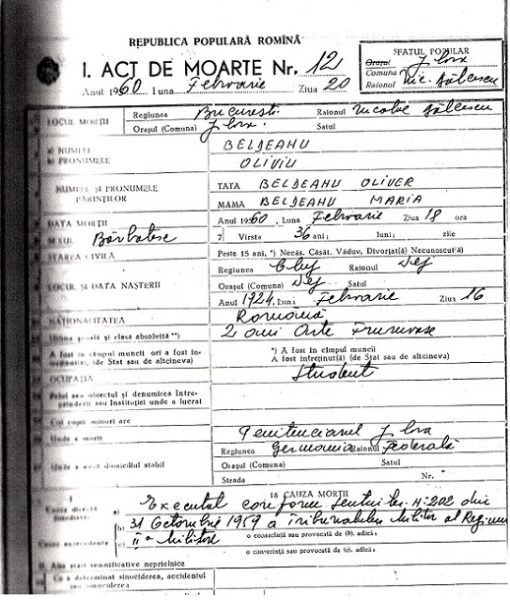 REPUBLICA POPULARĂ ROMÎNĂ
I. ACT DE MOARTE Nr. 12
Anul 1960 Luna Februarie Ziua 20
SFATUL POPULAR
Orașul Jilava
Comuna
Raionul Nic. Bălcescu
LOCUL MORȚII
Regiunea București Raionul Nicolae Bălcescu
Orașul (Comuna) Jilava. Satul
NUMELE BELDEANU
PRONUMELE OLIVIU
NUMELE ȘI PRONUMELE PĂRINȚILOR
TATA BELDEANU OLIVER
MAMA BELDEANU MARIA
DATA MORȚII Anul 1960, Luna Februarie Ziua 18 ora
SEXUL Bărbătesc 7 Vîrsta 36 ani; luni; zile
STAREA CIVILĂ Peste 15 ani, *) Necăs. Căsăt. Văduv, Divorțat(ă) Necunoscut(ă)
LOCUL ȘI DATA NAȘTERII
Regiunea Cluj Raionul Dej
Orașul (Comuna) Dej Satul
Anul 1924, Luna Februarie Ziua 16
NAȚIONALITATEA Română
Ultima școală și clasă absolvită **) 2 ani Arte Frumoase
A fost în cîmpul muncii ori a fost întreținut(ă), (de Stat sau de altcineva)
*) A fost în cîmpul muncii
A fost întreținut(ă) (de Stat sau de altcineva)
OCUPAȚIA Student
Felul sau obiectul și denumirea întreprinderii sau Instituției unde a lucrat
Cîți copii minori are
Unde a murit Penitenciarul Jilava
Unde a avut domiciliul stabil
Regiunea Germania Raionul Federală
Orașul (Comuna) Satul
Strada Nr.
18 CAUZA MORȚII
Cauza directă
imediată a) Executat conform Sentinței 4202 din
b) 31 Octombrie 1959 a Tribunalului Militar al Regiunii
o consecință sau provocată de (b). adică.
Cauze antecedente c) II-a Militare
o consecință sau provocată de (c). adică.
Alte stări semnificative nepricinice
Ce a determinat sinuciderea, accidentul sau omuciderea